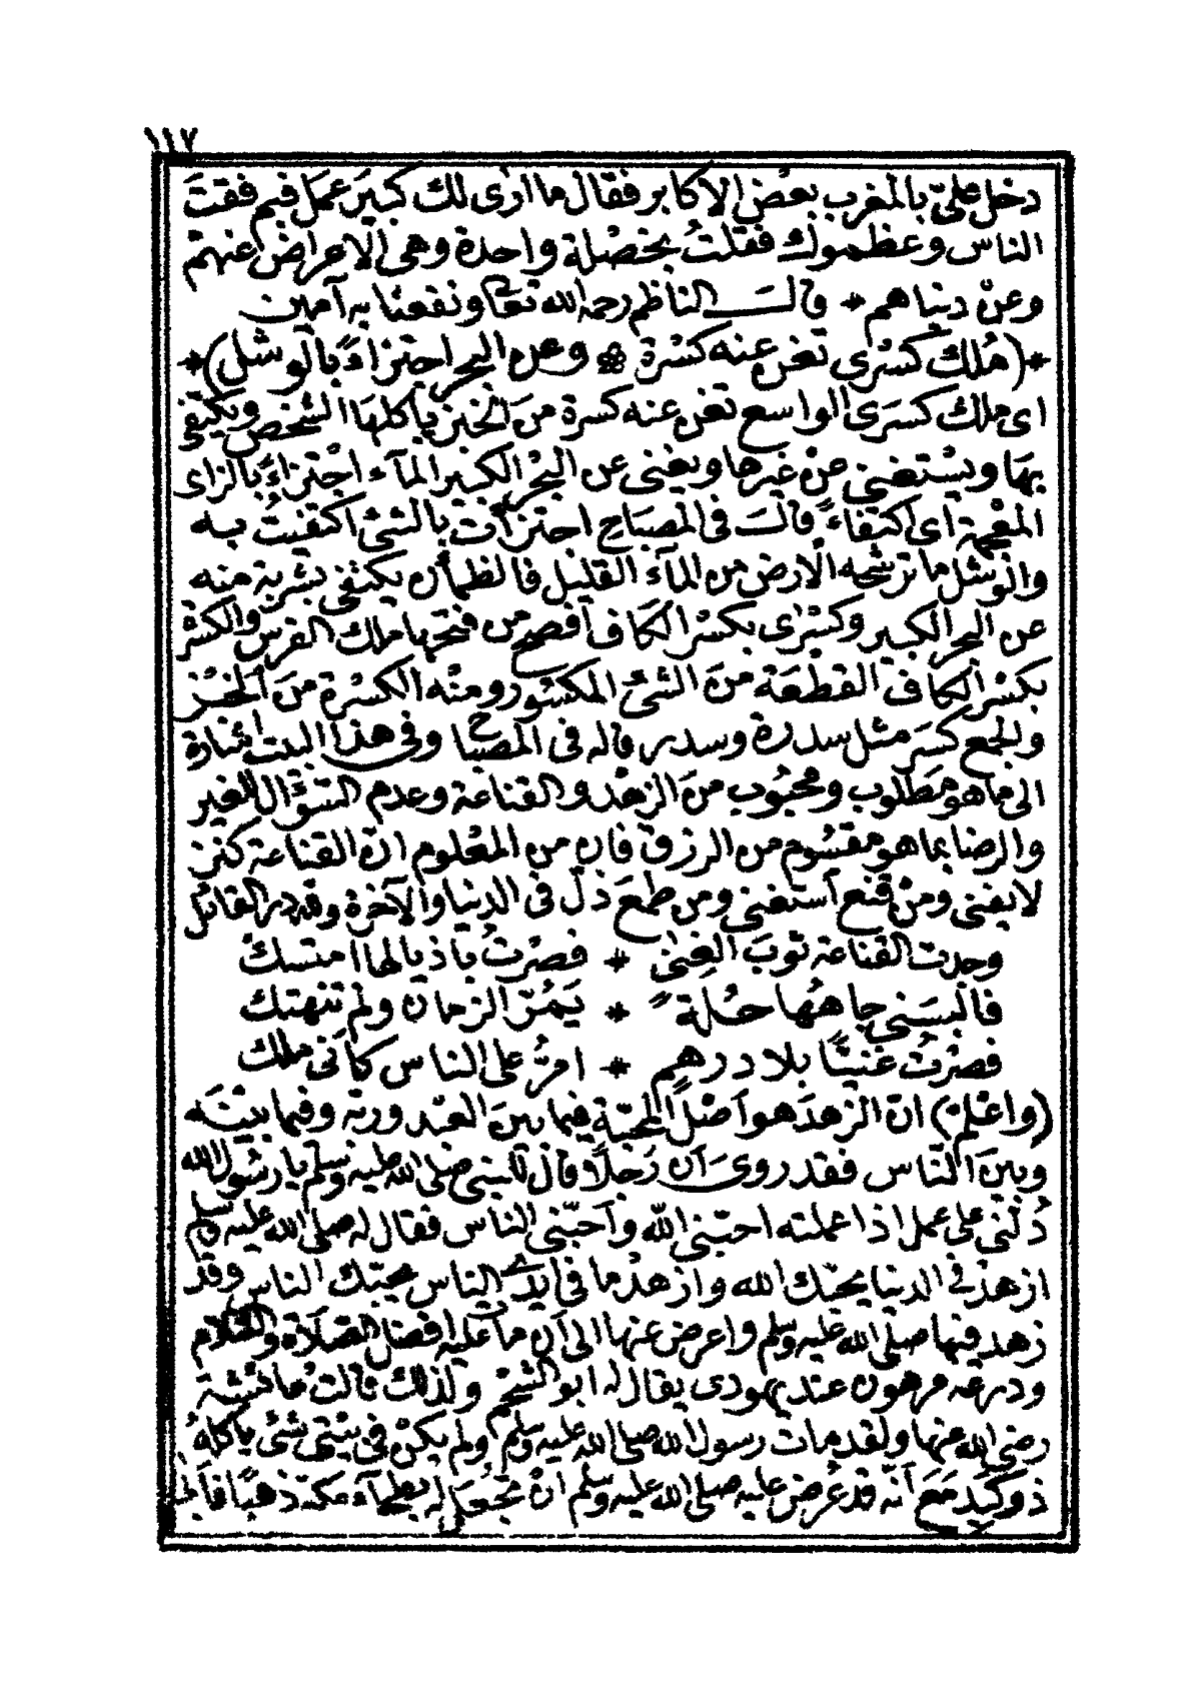 ١١٧
دخل علىّ بالمغرب بعض الاكابر فقال ما ارى لك كبيرَ عمل فبم فقتَ
الناس وعظموك فقلتُ بخصْلة واحدة وهى الاعراض عنهم
وعنْ دنياهم * قال الناظم رحمه الله تعالى ونفعنا به آمين
*(مُلك كسْرى تغن عنه كسْرة ❀ وعن البحر اجتزاءً بالوشل)*
اى ملك كسرَى الواسع تغن عنه كسرة منَ الخبز يأكلهَا الشخص ويكتفى
بهَا ويسْتغنى منْ غيرها ويغنى عن البحْر الكبير المآء اجْتزاءً بالزاى
المعْجمة اى اكتفاءً قال فى المصبَاح اجتزأت بالشئ اكتفيتُ به
والوشل ما ترشحه الارض من المآء القليل فالظمأن يكتفى بشربة منه
عن البحر الكبير وكسْرٰى بكسْر الكاف افصح من فتحها ملك الفرس والكسْر
بكسْر الكاف القطعَة منَ الشئ المكسور ومنْه الكسْرة منَ الخبز
والجمع كسَر مثل سدرة وسدر قاله فى المصباح وفى هذا البيت اشارة
الى ما هو مَطلوب ومحبُوب منَ الزهْد والقناعة وعدم السؤال للغير
والرضا بما هو مقسُوم من الرزق فان من المعْلوم انّ القناعة كنز
لا يفنى ومنْ قنع استغنى ومن طمعَ ذلّ فى الدنيا والآخرة ولله در القائل
وجدت القناعة ثوبَ الغِنٰى * فصرْتُ باذيالها امتسك
فالبسَنى جاهُها حُلةً * يَمُرّ الزمان ولم تنهتك
فصرْتُ غنيًّا بلا درهم * امرُّ على الناس كأنى ملك
(واعْلمْ) انّ الزهدَ هو اصْل المحبّة فيما بينَ العبْد وربّه وفيما بينَه
وبينَ النّاس فقد روىَ ان رَجلاً قال للنبى صلى الله عليه وسلم يا رسُول الله
دُلّنى على عمل اذا عملته احبّنى الله وأحبّنى الناس فقال له صلى الله عليه وسلم
ازهدْ فى الدنيا يحبّك الله وازهدْ ما فى ايدى الناس يحبّك الناس وقد
زهد فيها صلى الله عليه وسلم واعرض عنها الى أن مات عليه افضل الصّلاة والسّلام
ودرعه مرهون عند يهودى يقال له ابو الشحْم ولذلك قالتْ عائشة
رضى الله عنها ولقد مات رسول الله صلى الله عليه وسلم ولم يكنْ فى بيْتى شئ يأكلهُ
ذو كبِد مَعَ أنّه قدْ عُرض عليه صلى الله عليه وسلم انْ تجْعل له بطحآء مكة ذهبًا